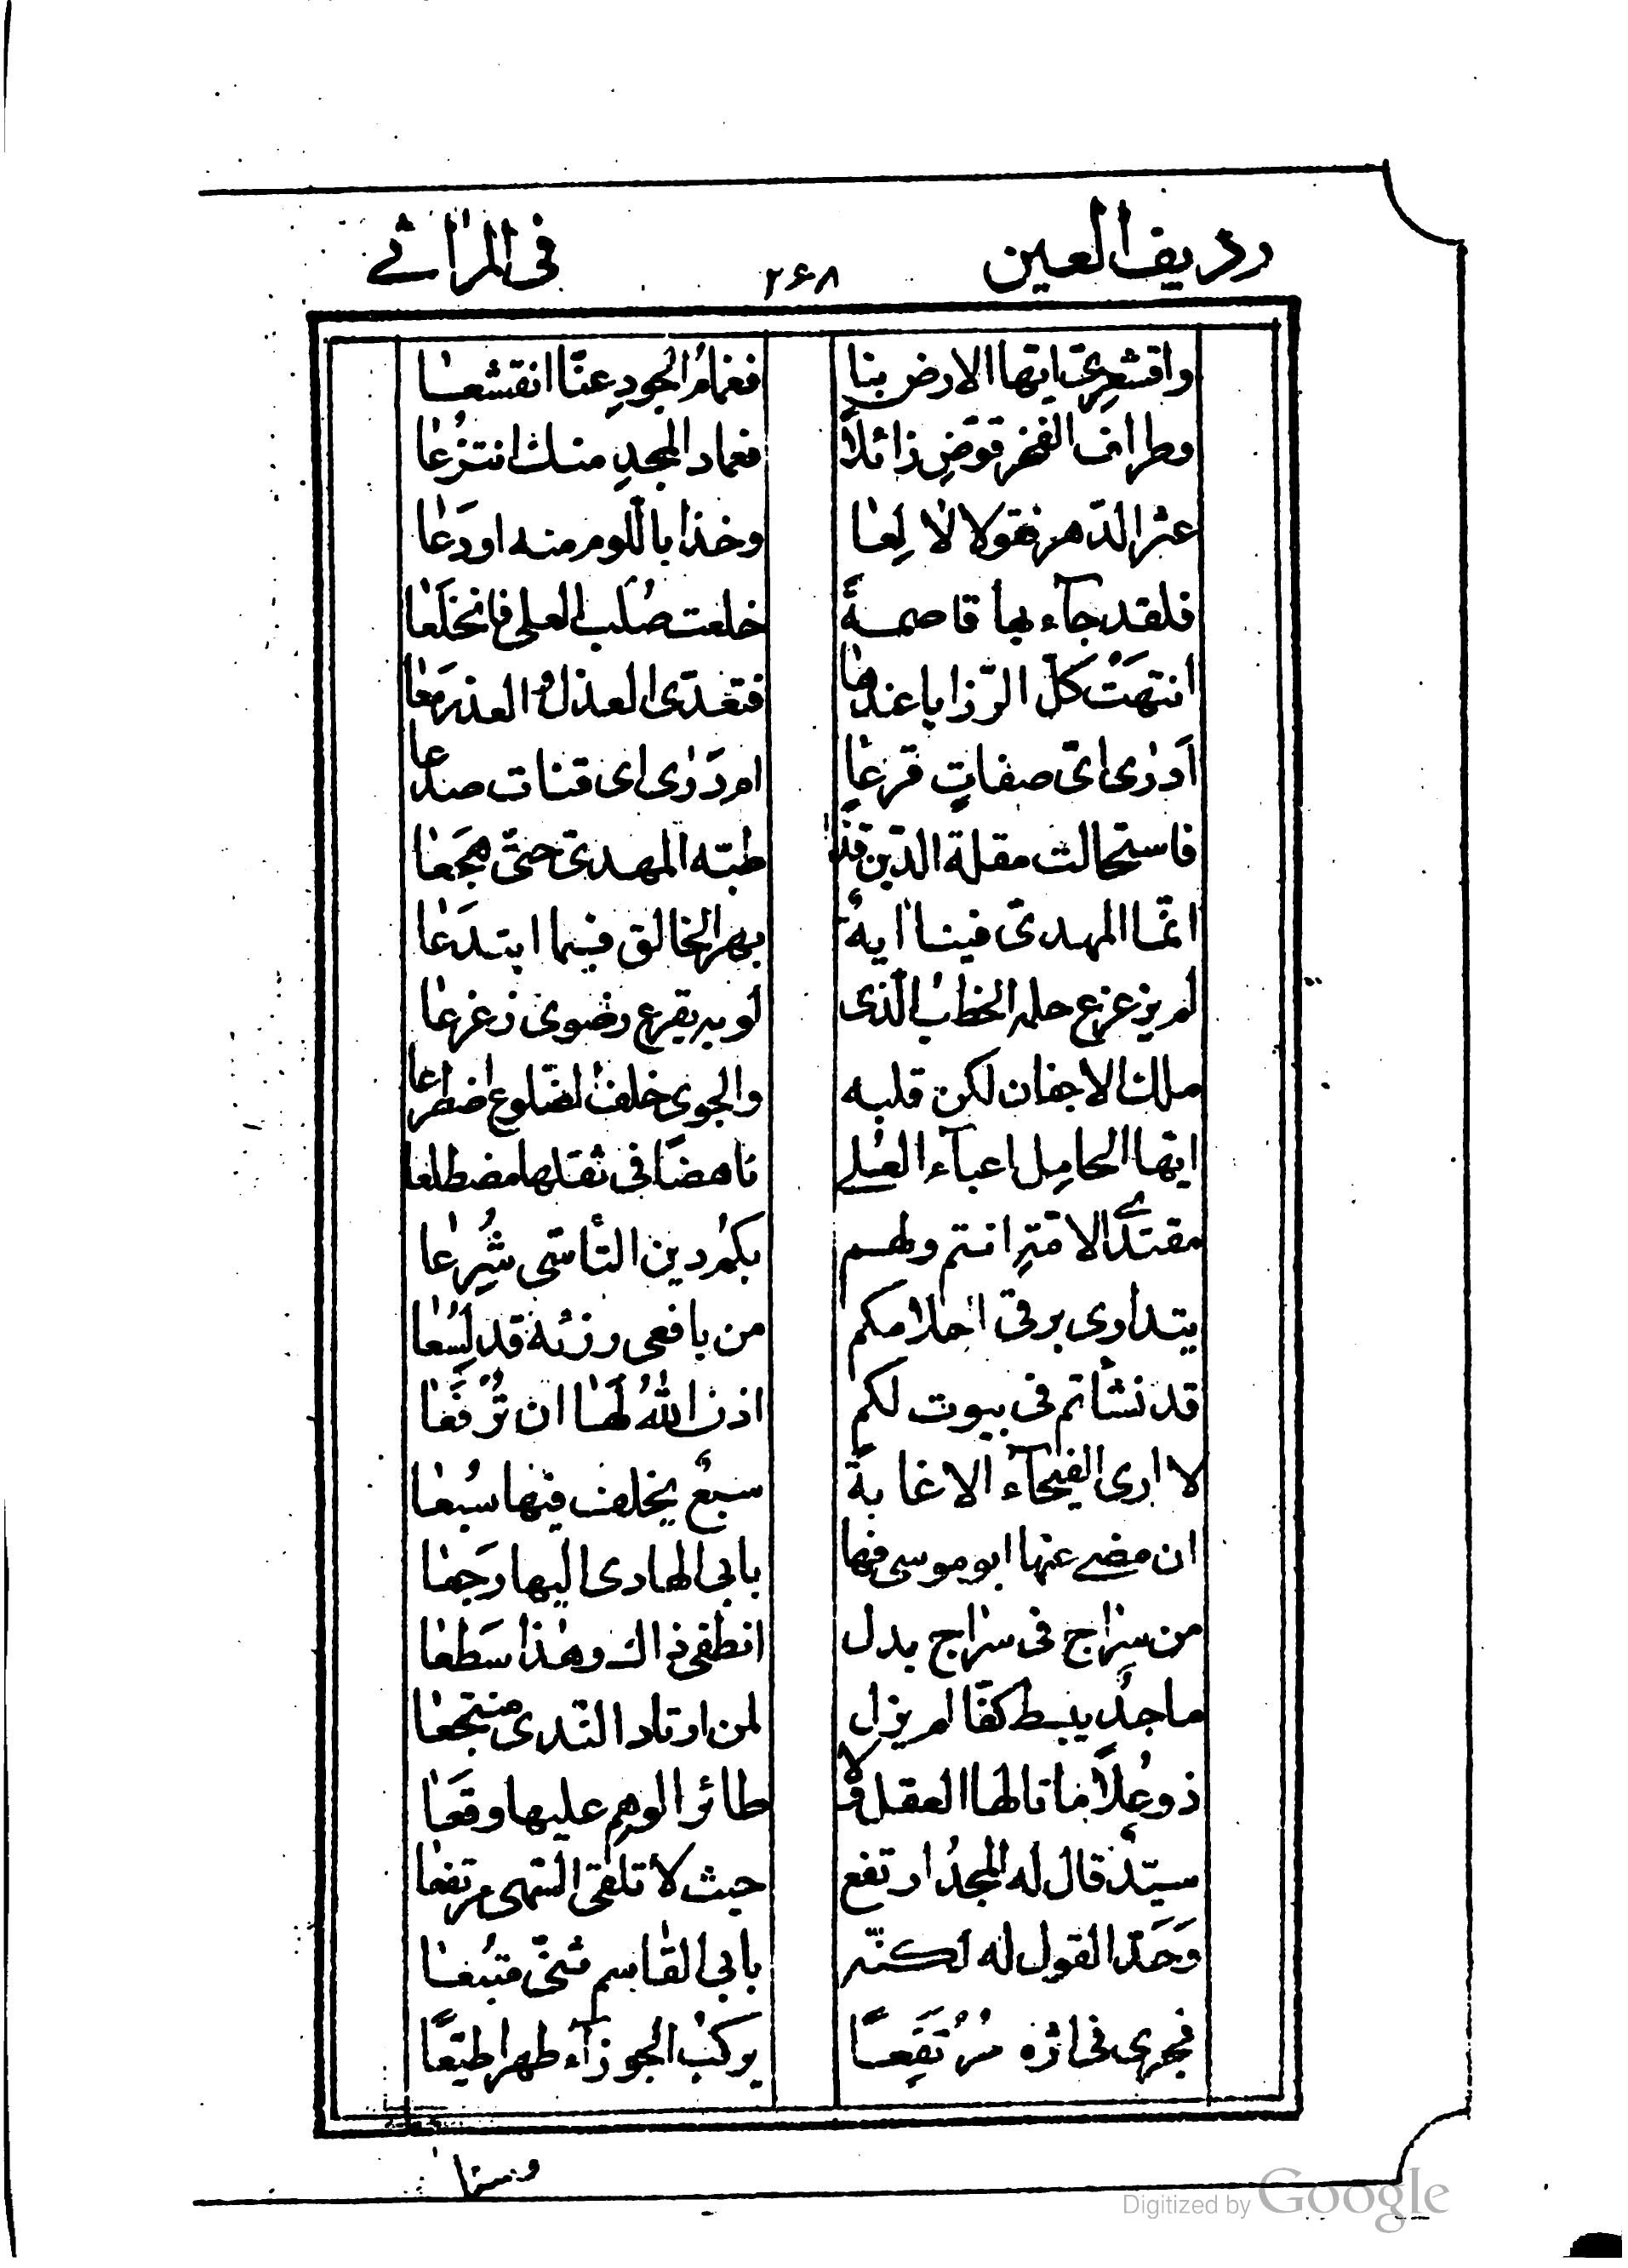 رديف العين ٢۶٨ في المراثے
واقشعرّي ايّها الارض بنا فغمامُ الجودِ عنّا انقشعا
وطراف الفخر قوّضِ زائلاً فعماد المجدِ منك انتزُعا
عثر الدّهر فقولا لا لِعا وخذا باللّوم منه اودَعا
فلقد جآء بها قاصمةً خلعت صُلبَ العلى فانخلَعا
انتهَتْ كلّ الرّزايا عندها فتعدّى العذل والعذر معا
اَدَرٰى ايّ صفاتٍ قرعا ام دَرٰى اى قنات صدعا
فاستحالت مقلة الدّين قذًا طبّه المهديّ حتّى هجَعا
انّما المهديّ فينا ايةٌ بهر الخالق فيما ابتدَعا
لم يزعزع حلمه الخطبُ الّذى لو به يقرع رضوى زعزعا
ملك الاجفان لكن قلبه والجوى خلف الضّلوع اضطرعا
ايّها الحامِل اعبآء العُلے ناهضًا في ثقلها مضطلعا
مقتدَے الامّةِ انتم ولهم بكمُ دين التأسّى شُرِعا
يتداوى برقى احلامكم من بافعى رزئه قد لُسِعا
قد نشأتم في بيوت لكم اذن اللهُ لهَا ان تُرْفَعا
لا ارى الفيحآء الا غابةً سبعٌ يخلف فيها سبُعا
ان مضے عنها ابو موسى فها بابي الهادى اليها رَجعا
من سراج في سراج بدل انطفى ذاك وهذا سَطعا
ماجدٌ يبسط كفّا لم يزل لمن ارتاد النّدى منتجعا
ذو عُلاً ما نالها العقل ولا طائر الوهم عليها وقَعا
سيّدٌ قال له المجدُ ارتفع حيث لا تلقى السّهى مرتفعا
وَحَدَ القول له لكنّه بابي القاسم ثنّى متبعا
فجرى في اثره مُرْتَفِعًا يركبُ الجوزآء ظهرا طيّعًا
وسنا
Digitized by Google